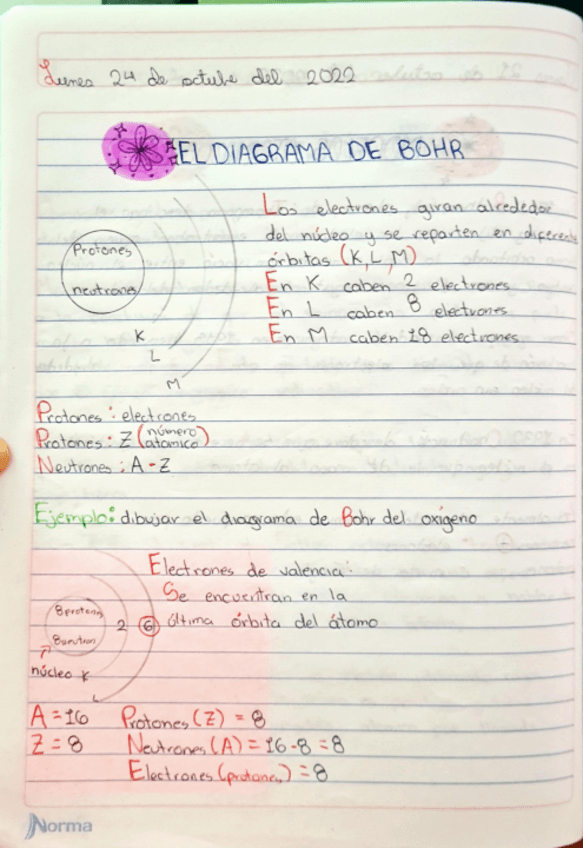 Lunes 24 de octubre del 2022
EL DIAGRAMA DE BOHR
Los electrones giran alrededor
del núcleo y se reparten en diferents
órbitas (K, L, M)
En K caben 2 electrones
En L caben 8 electrones
En M caben 18 electrones
Protones
neutrones
K
L
M
Protones: electrones
Protones: Z (número atómico)
Neutrones: A-Z
Ejemplo: dibujar el diagrama de Bohr del oxígeno
Electrones de valencia:
Se encuentran en la
última órbita del átomo
8 protones
8 neutron
2 6
núcleo K
L
A = 16 Protones (Z) = 8
Z = 8 Neutrones (A) = 16-8 = 8
Electrones (protones) = 8
Norma